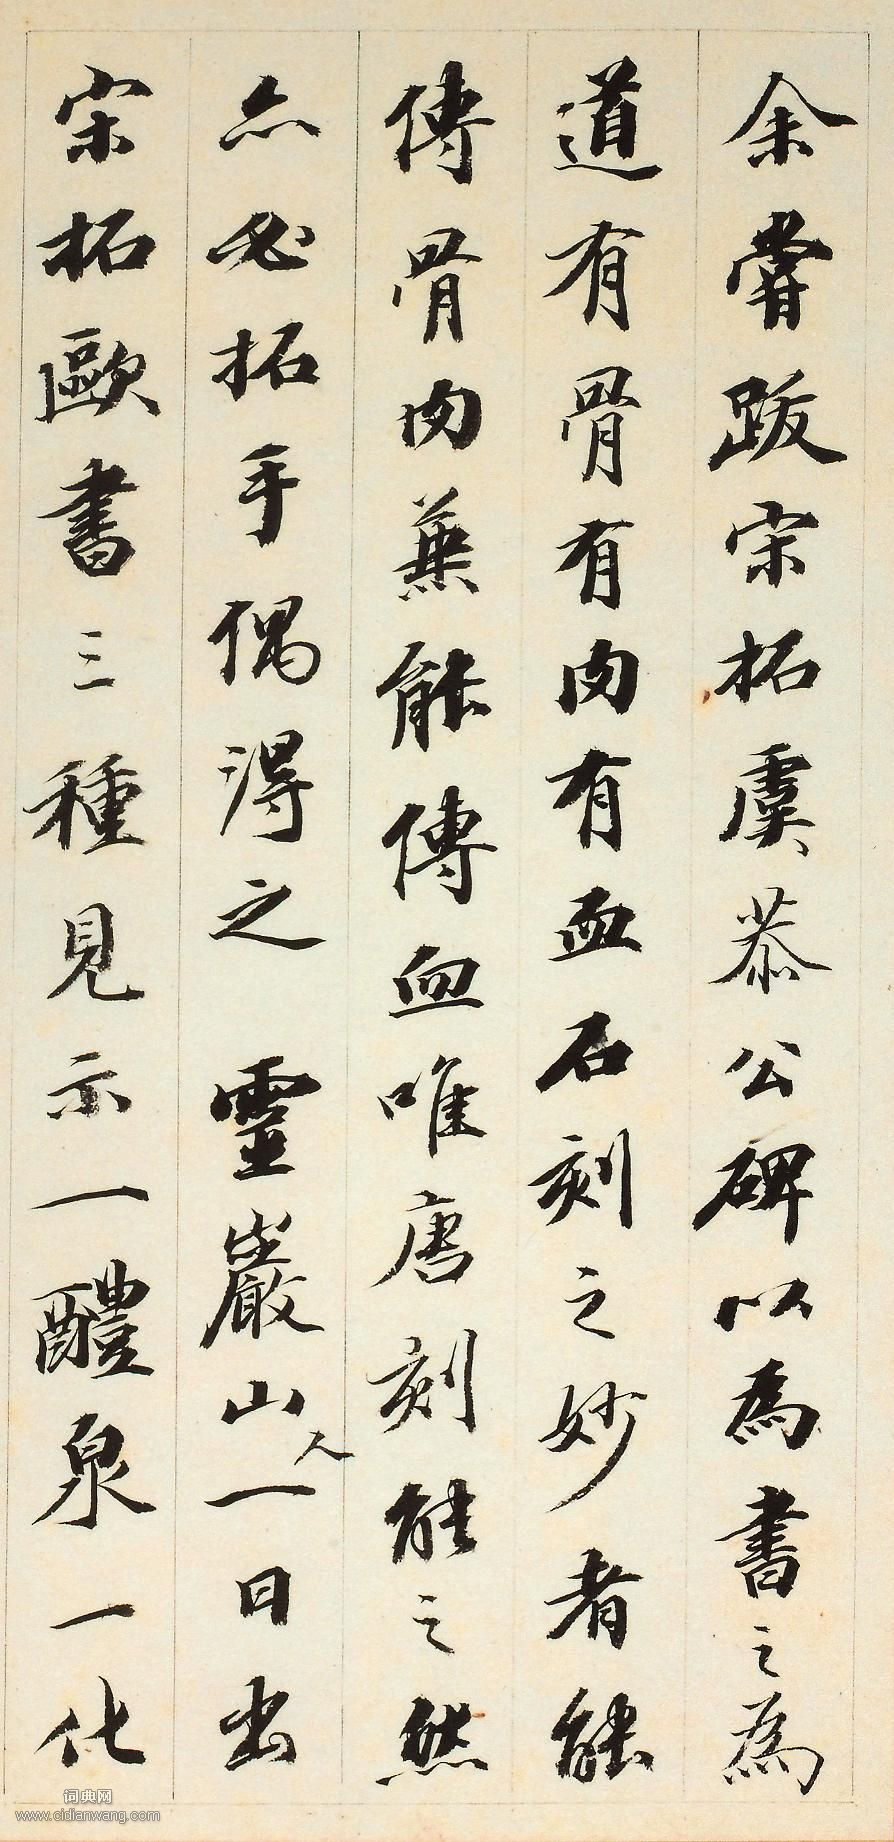 余嘗跋宋拓虞恭公碑以為書之為
道有骨有肉有血石刻之妙者能
傳骨肉兼能傳血唯唐刻能之然
亦必拓手偶得之 靈巖山人一日出
宋拓歐書三種見示一醴泉一化
词典网
www.cidianwang.com